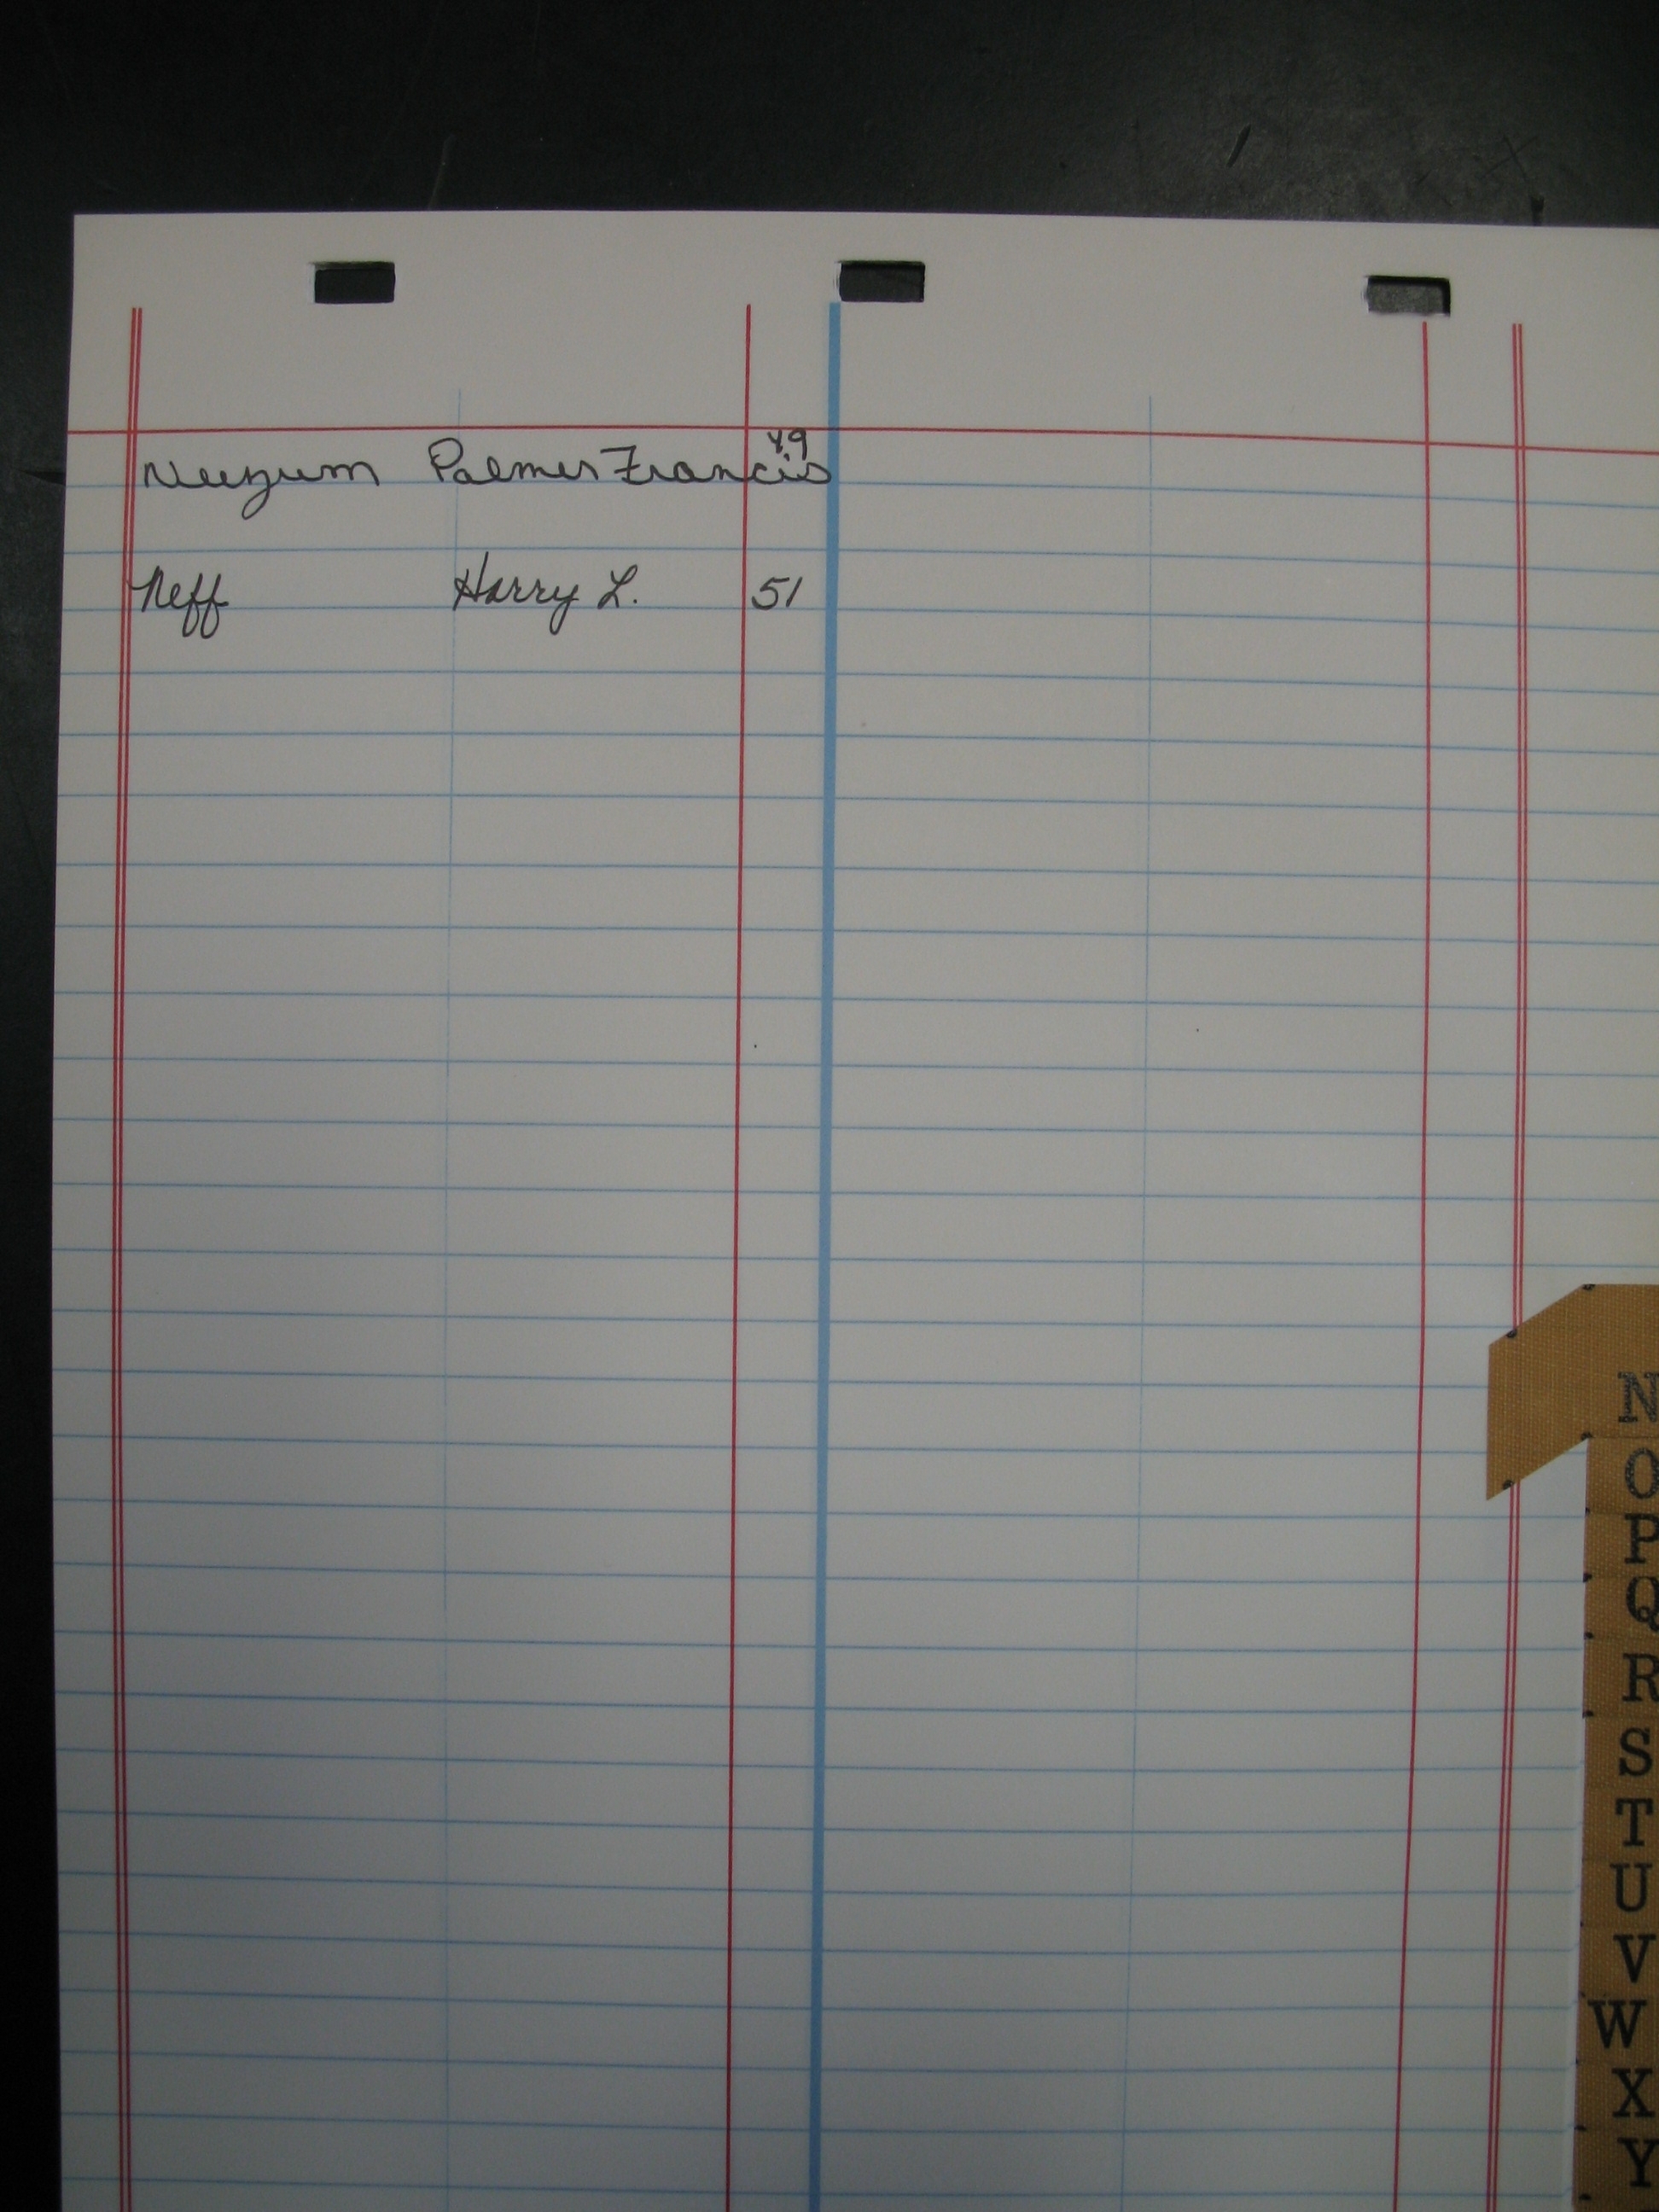 Neezum Palmer Francis 49
Neff Harry L. 51
N
O
P
Q
R
S
T
U
V
W
X
Y